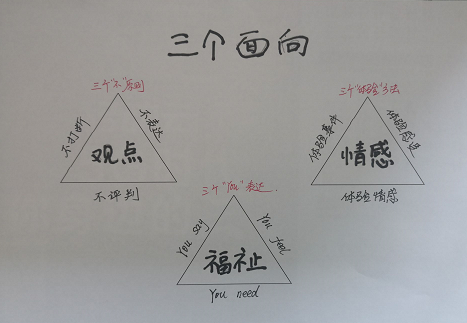 三个面向
三个"不"原则
不打断
不表达
观点
不评判
三个"体验"方法
体验事件
体验感受
情感
体验情感
三个"You"表达
You say
You feel
福祉
You need